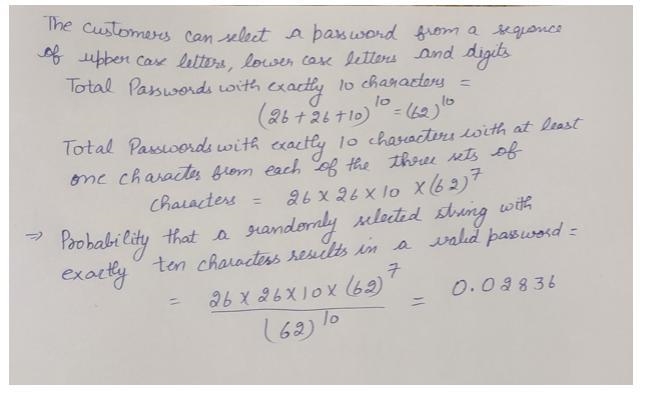 The customers can select a password from a sequence
of upper case letters, lower case letters and digits
Total Passwords with exactly 10 characters =
(26 + 26 + 10)^10 = (62)^10
Total Passwords with exactly 10 characters with at least
one character from each of the three sets of
characters = 26 x 26 x 10 x (62)^7
⇒ Probability that a randomly selected string with
exactly ten characters results in a valid password =
= 26 x 26 x 10 x (62)^7 / (62)^10 = 0.02836